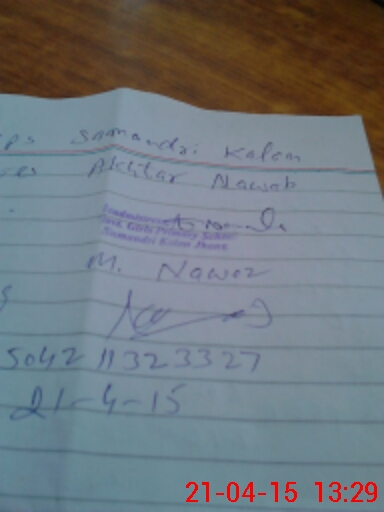 Samandri Kalan
Akhtar Nawab
Headmistress
Govt. Girls Primary School
Samandri Kalan Jhang
M. Nawaz
5042 11323327
21-4-15
21-04-15 13:29